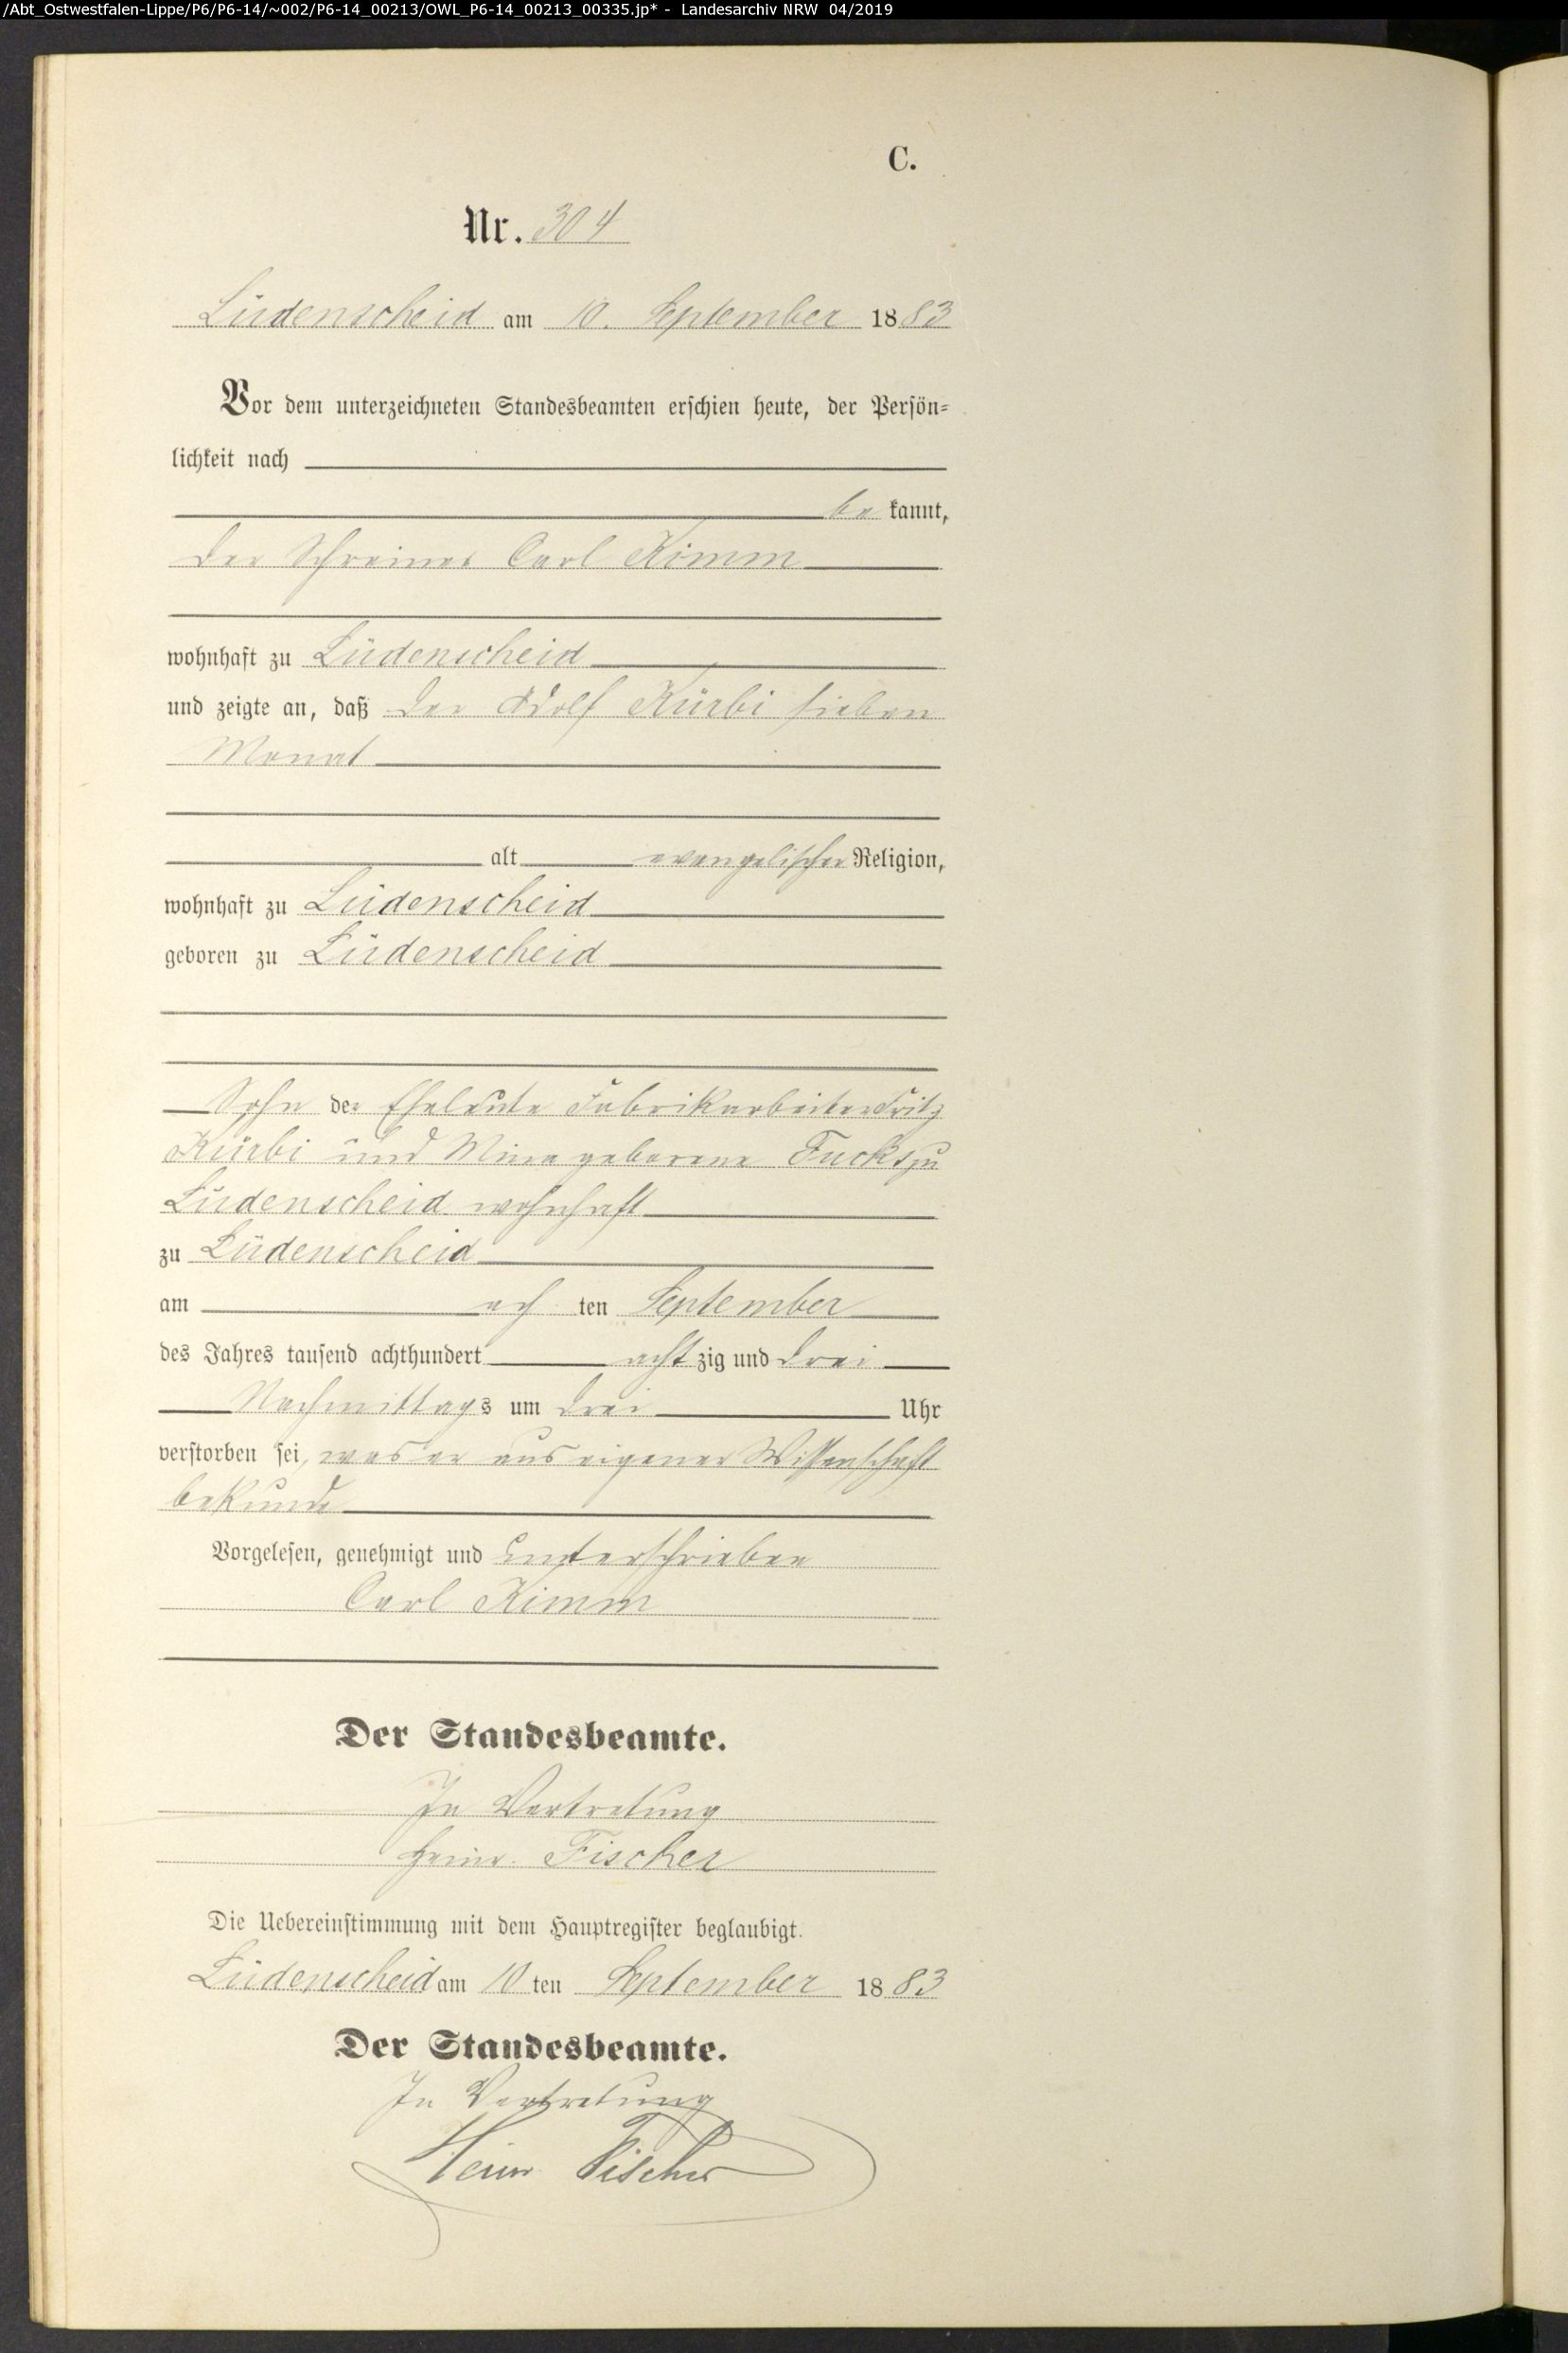 /Abt_Ostwestfalen-Lippe/P6/P6-14/~002/P6-14_00213/OWL_P6-14_00213_00335.jp* - Landesarchiv NRW 04/2019
C.
Nr. 304
Lüdenscheid am 10. September 1883
Vor dem unterzeichneten Standesbeamten erschien heute, der Persön-
lichkeit nach
be kannt,
der Schreiner Carl Kimm
wohnhaft zu Lüdenscheid
und zeigte an, daß der Adolf Kürbi sieben
Monat
alt evangelischer Religion,
wohnhaft zu Lüdenscheid
geboren zu Lüdenscheid
Sohn der Eheleute Fabrikarbeiter Fritz
Kürbi und Mina geborene Fucks zu
Lüdenscheid wohnhaft
zu Lüdenscheid
am ach ten September
des Jahres tausend achthundert acht zig und drei
Nachmittags um drei Uhr
verstorben sei, was er aus eigener Wissenschaft
bekunde
Vorgelesen, genehmigt und unterschrieben
Carl Kimm
Der Standesbeamte.
In Vertretung
Heinr. Fischer
Die Uebereinstimmung mit dem Hauptregister beglaubigt.
Lüdenscheid am 10 ten September 1883
Der Standesbeamte.
In Vertretung
Heinr Fischer